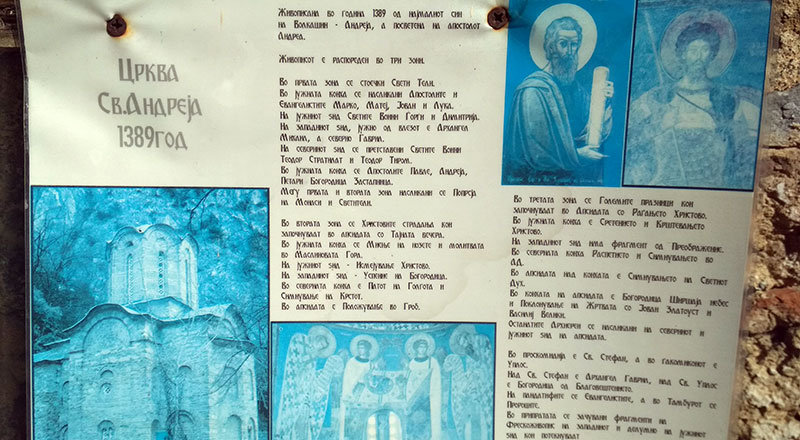 Црква
Св.Андреја
1389год
Живописана во година 1389 од најмалиот син
на Волкашин - Андреја, а посветена на апостолот
Андреа.
Живописот е распореден во три зони.
Во првата зона се стоечки Свети Тели.
Во јужната конха се насликани Апостолите и
Евангелистите Марко, Матеј, Јован и Лука.
На јужниот ѕид Светите Воини Горги и Димитрија.
На западниот ѕид, јужно од влезот е Архангел
Михаил, а северно Гаврил.
На северниот ѕид се претставени Светите Воини
Теодор Стратилат и Теодор Тирон.
Во јужната конха се Апостолите Павле, Андреја,
Петар и Богородица Заступница.
Меѓу првата и втората зона насликани се Попрсја
на Монаси и Светители.
Во втората зона се Христовите страдања кои
започнуваат во апсидата со Тајната вечера.
Во јужната конха е Миење на нозете и молитвата
во Маслиновата Гора.
На јужниот ѕид - Исмејување Христово.
На западниот ѕид - Успение на Богородица.
Во северната конха е Патот на Голгота и
Симнување на Крстот.
Во апсидата е Положување во Гроб.
Во третата зона се Големите празници кои
започнуваат во Апсидата со Раѓањето Христово.
Во јужната конха е Сретението и Крштевањето
Христово.
На западниот ѕид има фрагмент од Преображение.
Во северната конха Распетието и Симнувањето во
Ад.
Во апсидата над конхата е Симнувањето на Светиот
Дух.
Во конхата на апсидата е Богородица Ширшаја небес
и Поклонување на Жртвата со Јован Златоуст и
Василиј Велики.
Останатите Архиереи се насликани на северниот и
јужниот ѕид на апсидата.
Во проскомидија е Св. Стефан, а во ѓакониконот е
Уплос.
Над Св. Стефан е Архангел Гаврил, над Св. Уплос
е Богородица од Благовештението.
На пандатифите се Евангелистите, а во Тамбурот се
Пророците.
Во припратата се зачувани фрагменти на
Фрескоживопис на западниот и делумно на јужниот
ѕид кои потекнуваат